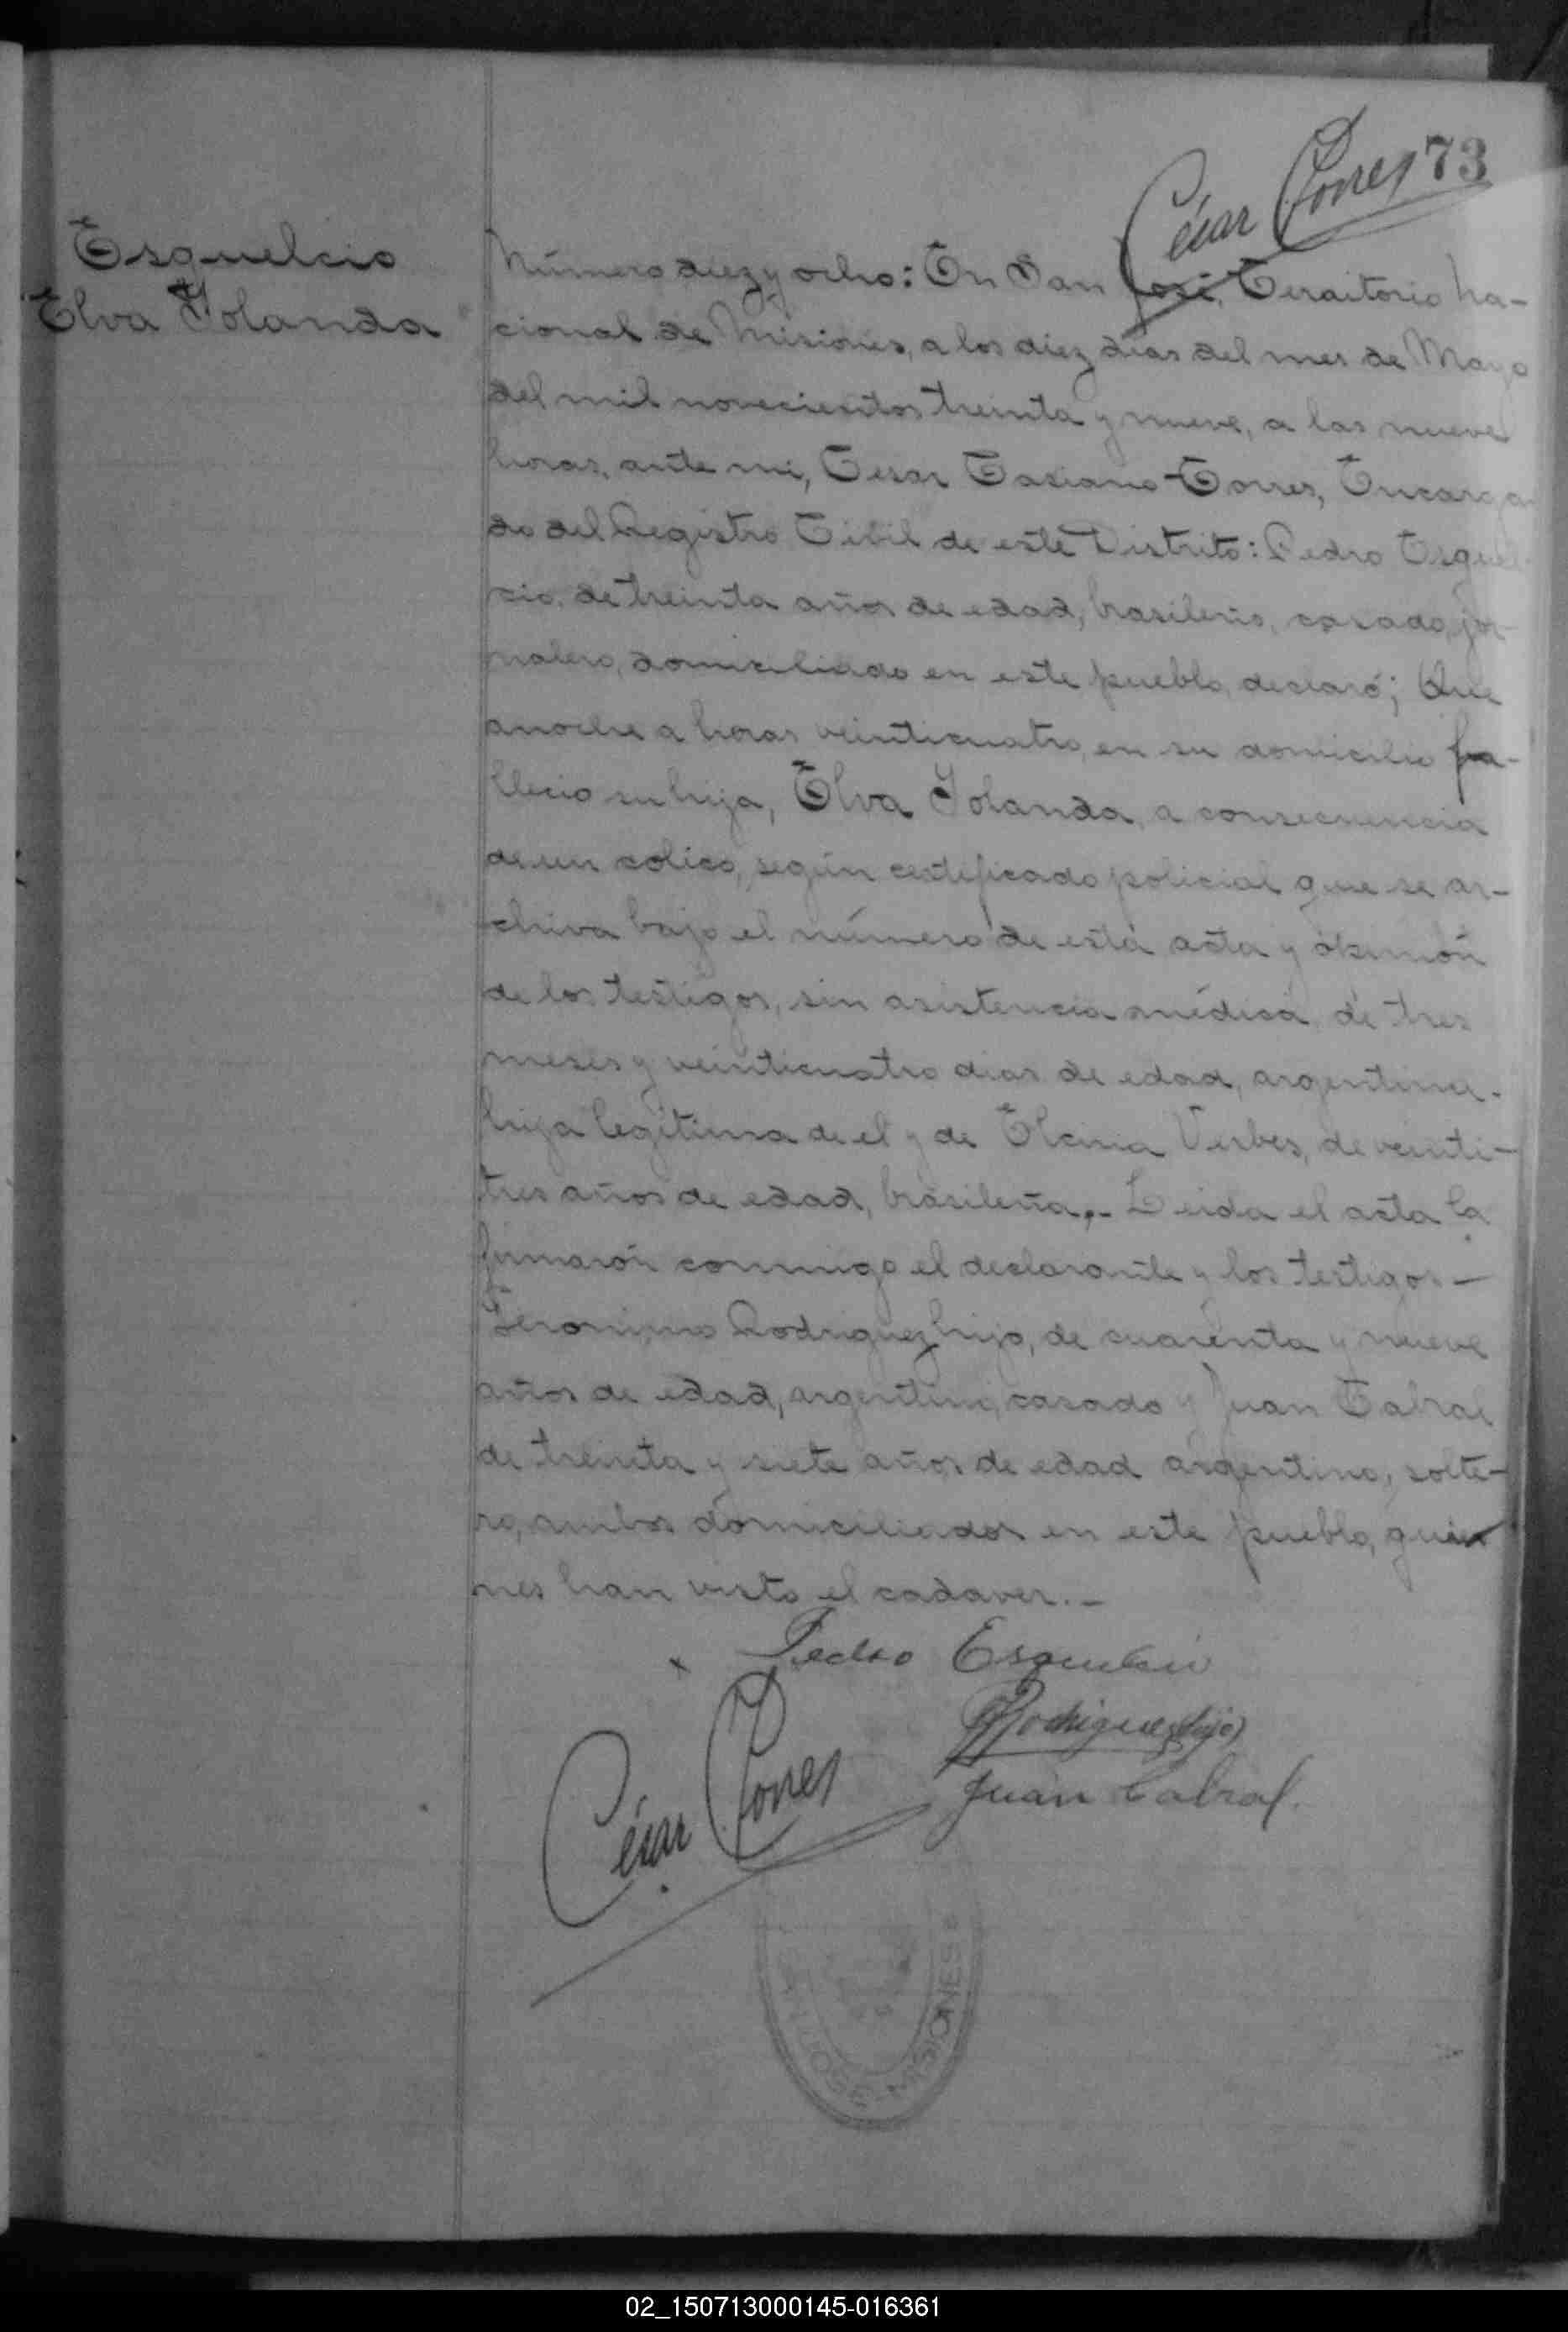 73
César Torres
Esquelcio
Elva Yolanda
Número diez y ocho: En San José, Territorio Na-
cional de Misiones, a los diez dias del mes de Mayo
del mil novecientos treinta y nueve, a las nueve
horas, ante mi, Cesar Casiano Torres, Encarga
do del Registro Civil de este Distrito: Pedro Esquel-
cio, de treinta años de edad, brasilerio, casado, jor-
nalero, domiciliado en este pueblo, declaró; Que
anoche a horas veinticuatro, en su domicilio fa-
llecio su hija, Elva Yolanda, a consecuencia
de un colico, según certificado policial que se ar-
chiva bajo el número de esta acta y opinión
de los testigos, sin asistencia médica, de tres
meses y veinticuatro dias de edad, argentina.
hija legítima de el y de Elcina Verbes, de veinti-
tres años de edad, brasileña,.- Leida el acta la
firmarón conmigo el declarante y los testigos -
Geronimo Rodriguez hijo, de cuarenta y nueve
años de edad, argentino, casado y Juan Cabral
de treinta y siete años de edad argentino, solte-
ro, ambos domiciliados en este pueblo, quie
nes han visto el cadaver.-
x Pedro Esquelcio
Rodriguez (hijo)
César Torres
Juan Cabral.
SAN JOSE - MISIONES
02_150713000145-016361